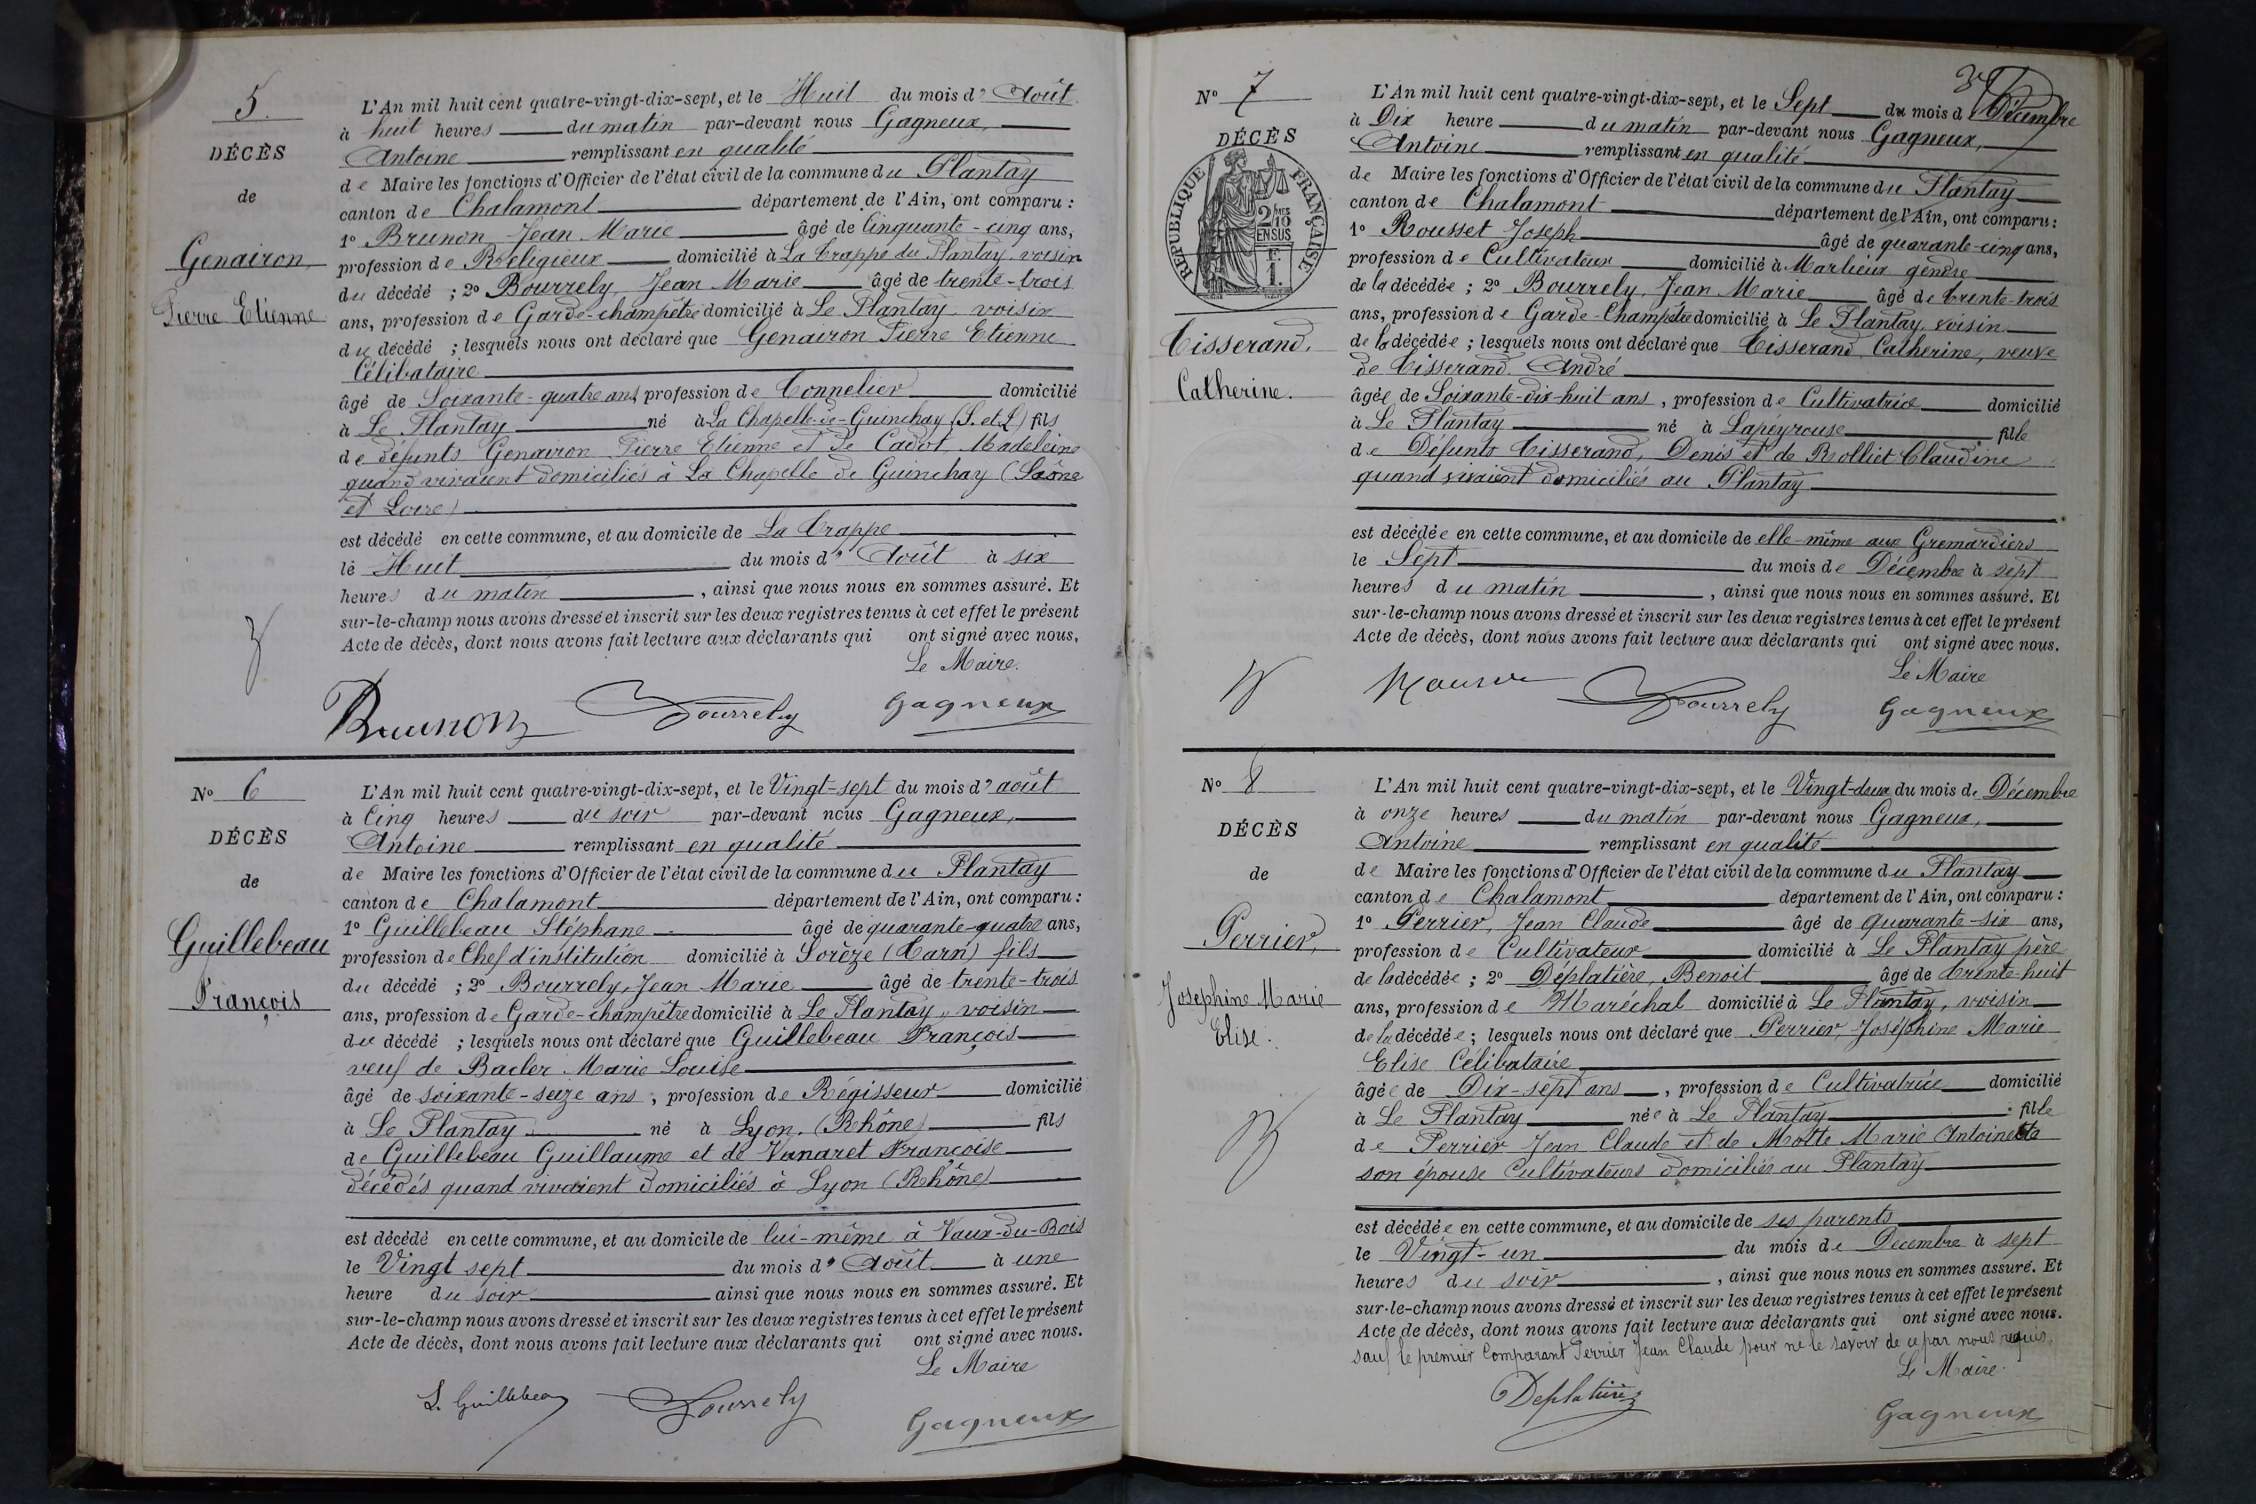 5.
DÉCÈS
de
Genairon,
Pierre Etienne
L'An mil huit cent quatre-vingt-dix-sept, et le Huit du mois d' Août
à huit heures du matin par-devant nous Gagneux,
Antoine remplissant en qualité
de Maire les fonctions d'Officier de l'état civil de la commune du Plantay
canton de Chalamont département de l'Ain, ont comparu :
1º Brunon Jean Marie âgé de Cinquante-cinq ans,
profession de Religieux domicilié à La Trappe du Plantay voisin
du décédé ; 2º Bourrely, Jean Marie âgé de trente-trois
ans, profession de Garde-champêtre domicilié à Le Plantay, voisin
du décédé ; lesquels nous ont déclaré que Genairon Pierre Etienne
Célibataire
âgé de Soixante-quatre ans, profession de Tonnelier domicilié
à Le Plantay né à La Chapelle-de-Guinchay (S. et L) fils
de défunts Genairon Pierre Etienne et de Cadot Madeleine
quand vivaient domiciliés à La Chapelle de Guinchay (Saône
et Loire)
est décédé en cette commune, et au domicile de La Trappe
le Huit du mois d' Août à six
heures du matin , ainsi que nous nous en sommes assuré. Et
sur-le-champ nous avons dressé et inscrit sur les deux registres tenus à cet effet le présent
Acte de décès, dont nous avons fait lecture aux déclarants qui ont signé avec nous.
Le Maire.
Brunon Bourrely Gagneux
Nº 6
DÉCÈS
de
Guillebeau
François
L'An mil huit cent quatre-vingt-dix-sept, et le Vingt-sept du mois d' août
à Cinq heures du soir par-devant nous Gagneux,
Antoine remplissant en qualité
de Maire les fonctions d'Officier de l'état civil de la commune du Plantay
canton de Chalamont département de l'Ain, ont comparu :
1º Guillebeau Stéphane âgé de quarante-quatre ans,
profession de Chef d'institution domicilié à Sorèze (Tarn) fils
du décédé ; 2º Bourrely, Jean Marie âgé de trente-trois
ans, profession de Garde-champêtre domicilié à Le Plantay, voisin
du décédé ; lesquels nous ont déclaré que Guillebeau François
veuf de Bader Marie Louise
âgé de soixante-seize ans, profession de Régisseur domicilié
à Le Plantay né à Lyon. (Rhône) fils
de Guillebeau Guillaume et de Vanaret Françoise
décédés quand vivaient domiciliés à Lyon (Rhône)
est décédé en cette commune, et au domicile de lui-même à Vaux-du-Bois
le Vingt sept du mois d' Août à une
heure du soir ainsi que nous nous en sommes assuré. Et
sur-le-champ nous avons dressé et inscrit sur les deux registres tenus à cet effet le présent
Acte de décès, dont nous avons fait lecture aux déclarants qui ont signé avec nous.
Le Maire
S. Guillebeau Bourrely Gagneux
Nº 7
DÉCÈS
RÉPUBLIQUE FRANÇAISE
2/10
EN SUS
F.
1.
Tisserand,
Catherine.
L'An mil huit cent quatre-vingt-dix-sept, et le Sept du mois d Décembre
à Dix heure du matin par-devant nous Gagneux,
Antoine remplissant en qualité
de Maire les fonctions d'Officier de l'état civil de la commune du Plantay
canton de Chalamont département de l'Ain, ont comparu :
1º Rousset Joseph âgé de quarante-cinq ans,
profession de Cultivateur domicilié à Marlieux gendre
de la décédée ; 2º Bourrely, Jean Marie âgé de trente-trois
ans, profession de Garde-Champêtre domicilié à Le Plantay, voisin
de la décédée ; lesquels nous ont déclaré que Tisserand, Catherine, veuve
de Tisserand André
âgée de Soixante-dix-huit ans, profession de Cultivatrice domicilié
à Le Plantay né à Lapeyrouse fille
de Défunts Tisserand, Denis et de Rolliet Claudine
quand vivaient domiciliés au Plantay
est décédée en cette commune, et au domicile de elle-même aux Gremardiers
le Sept du mois de Décembre à sept
heures du matin , ainsi que nous nous en sommes assuré. Et
sur-le-champ nous avons dressé et inscrit sur les deux registres tenus à cet effet le présent
Acte de décès, dont nous avons fait lecture aux déclarants qui ont signé avec nous.
Le Maire
Bourrely Gagneux
Nº 8
DÉCÈS
de
Perrier,
Josephine Marie
Elise.
L'An mil huit cent quatre-vingt-dix-sept, et le Vingt-deux du mois de Décembre
à onze heures du matin par-devant nous Gagneux,
Antoine remplissant en qualité
de Maire les fonctions d'Officier de l'état civil de la commune du Plantay
canton de Chalamont département de l'Ain, ont comparu :
1º Perrier, Jean Claude âgé de quarante-six ans,
profession de Cultivateur domicilié à Le Plantay père
de la décédée ; 2º Déplatière, Benoit âgé de trente-huit
ans, profession de Maréchal domicilié à Le Plantay, voisin
de la décédée ; lesquels nous ont déclaré que Perrier, Joséphine Marie
Elise Célibataire
âgée de Dix-sept ans , profession de Cultivatrice domicilié
à Le Plantay née à Le Plantay fille
de Perrier Jean Claude et de Motte Marie Antoinette
son épouse Cultivateurs domiciliés au Plantay
est décédée en cette commune, et au domicile de ses parents
le Vingt-un du mois de Decembre à sept
heures du soir , ainsi que nous nous en sommes assuré. Et
sur-le-champ nous avons dressé et inscrit sur les deux registres tenus à cet effet le présent
Acte de décès, dont nous avons fait lecture aux déclarants qui ont signé avec nous.
sauf le premier Comparant Perrier Jean Claude pour ne le savoir de ce par nous requis.
Le Maire.
Deplatière Gagneux